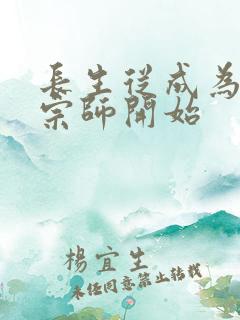 長生從成為
宗師開始
楊宜生
未經同意禁止轉載